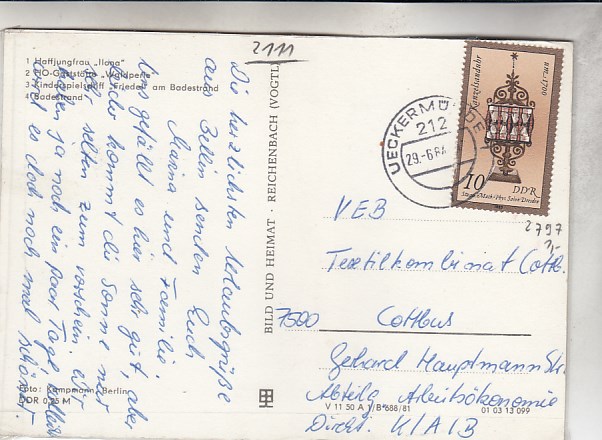 1 Haffjungfrau „Ilona"
2 HO-Gaststätte „Waldperle"
3 Kinderspielschiff „Frieden" am Badestrand
4 Badestrand
2111
Die herzlichsten Urlaubsgrüße
aus Bellin senden Euch
Marina und Familie.
Uns gefällt es hier sehr gut, aber
leider kommt die Sonne nur
sehr selten zum vorschein. Wir
haben ja noch ein paar Tage, vielleicht
wird es doch noch mal schöner.
Foto: Kampmann, Berlin
DDR 0,25 M
BILD UND HEIMAT · REICHENBACH (VOGTL)
V 11 50 A 1/B 688/81
01 03 13 099
UECKERMÜNDE
212
29.-6.84
Kanzelsanduhr
um 1700
10
DDR
Staatl. Math.-Phys. Salon Dresden
2797
VEB
Textilkombinat Cottb.
7500 Cottbus
Gerhard Hauptmann Str.
Abteilg Arbeitsökonomie
Direkt. K/A/B